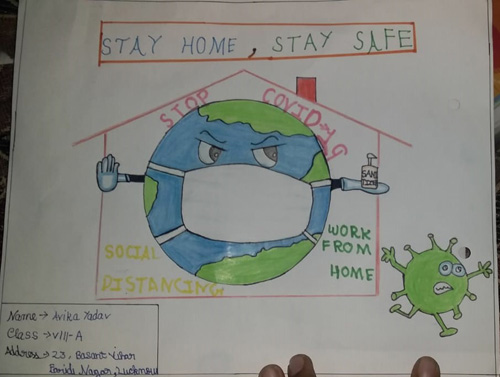 STAY HOME, STAY SAFE
STOP COVID-19
SANI
SOCIAL
DISTANCING
WORK
FROM
HOME
Name → Avika Yadav
Class → VIII-A
Address → 23, Basant Vihar
Faridi Nagar, Lucknow